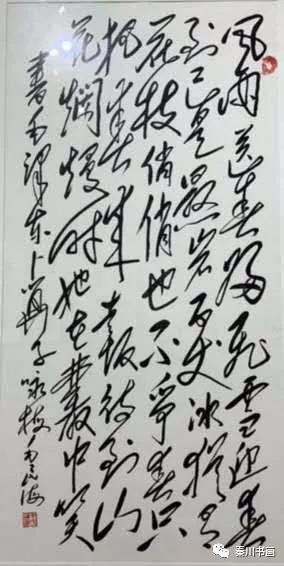 風雨送春归飛雪迎春
到已是悬岩百丈冰犹有
花枝俏俏也不争春只
把春来报待到山
花烂熳时她在丛中笑
書毛泽东卜算子咏梅
秦川书画